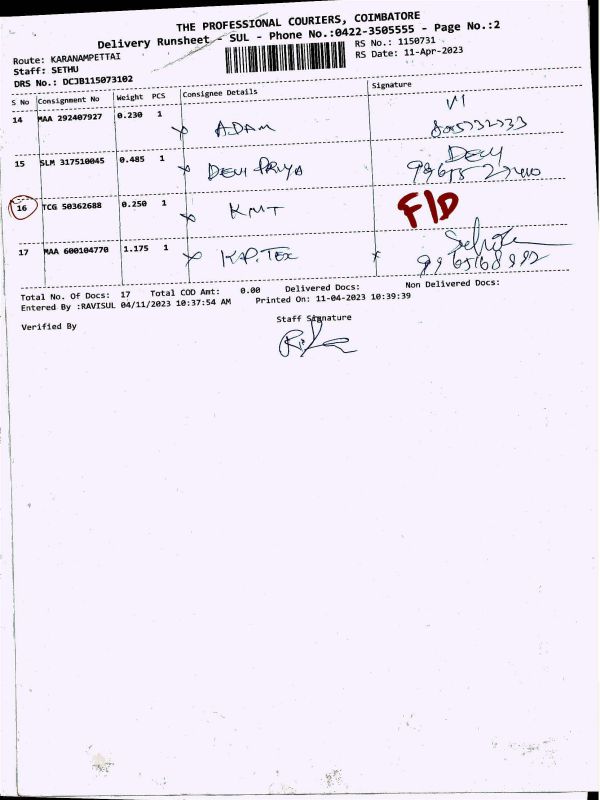 THE PROFESSIONAL COURIERS, COIMBATORE
Delivery Runsheet - SUL - Phone No.:0422-3505555 - Page No.:2
Route: KARANAMPETTAI
Staff: SETHU
DRS No.: DCJB115073102
RS No.: 1150731
RS Date: 11-Apr-2023
S No Consignment No Weight PCS Consignee Details Signature
14 MAA 292407927 0.230 1 ADAM
15 SLM 317510045 0.485 1 DEVI PRIYA DEVI
16 TCG 50362688 0.250 1 KMT F/D
17 MAA 600104770 1.175 1 KAP.TEX
Total No. Of Docs: 17 Total COD Amt: 0.00 Delivered Docs: Non Delivered Docs:
Entered By :RAVISUL 04/11/2023 10:37:54 AM Printed On: 11-04-2023 10:39:39
Verified By Staff Signature